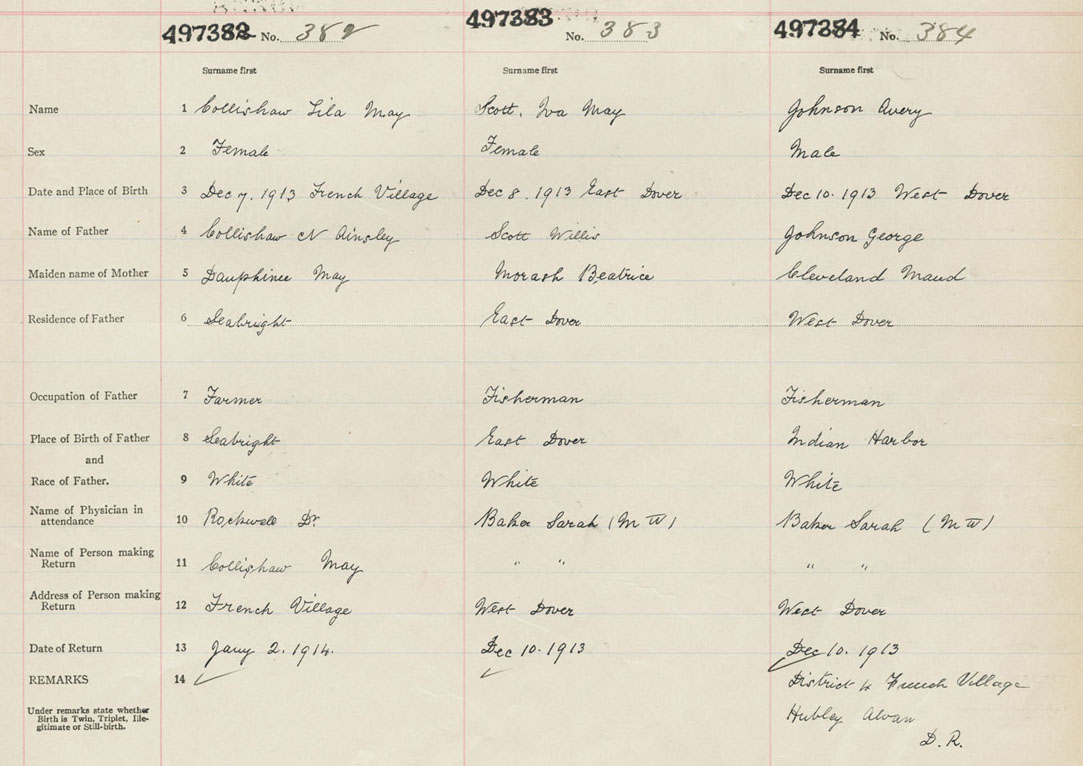 497382 No. 382 497383 No. 383 497384 No. 384
Surname first Surname first Surname first
Name 1 Collishaw Lila May Scott, Iva May Johnson Avery
Sex 2 Female Female Male
Date and Place of Birth 3 Dec 7. 1913 French Village Dec 8. 1913 East Dover Dec 10. 1913 West Dover
Name of Father 4 Collishaw N Ainsley Scott Willis Johnson George
Maiden name of Mother 5 Dauphinee May Morash Beatrice Cleveland Maud
Residence of Father 6 Seabright East Dover West Dover
Occupation of Father 7 Farmer Fisherman Fisherman
Place of Birth of Father 8 Seabright East Dover Indian Harbor
and
Race of Father. 9 White White White
Name of Physician in
attendance 10 Rockwell Dr Baker Sarah (M W) Baker Sarah (M W)
Name of Person making
Return 11 Collishaw May " " " "
Address of Person making
Return 12 French Village West Dover West Dover
Date of Return 13 Jany 2. 1914. Dec 10. 1913 Dec 10. 1913
REMARKS 14 District French Village
Under remarks state whether
Birth is Twin, Triplet, Ille-
gitimate or Still-birth.
Hubley Alvan
D. R.